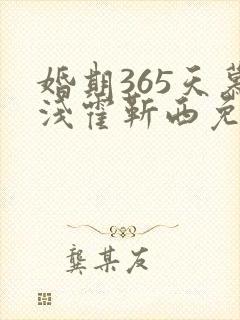 婚期365天慕
浅霍靳西免
龚某友